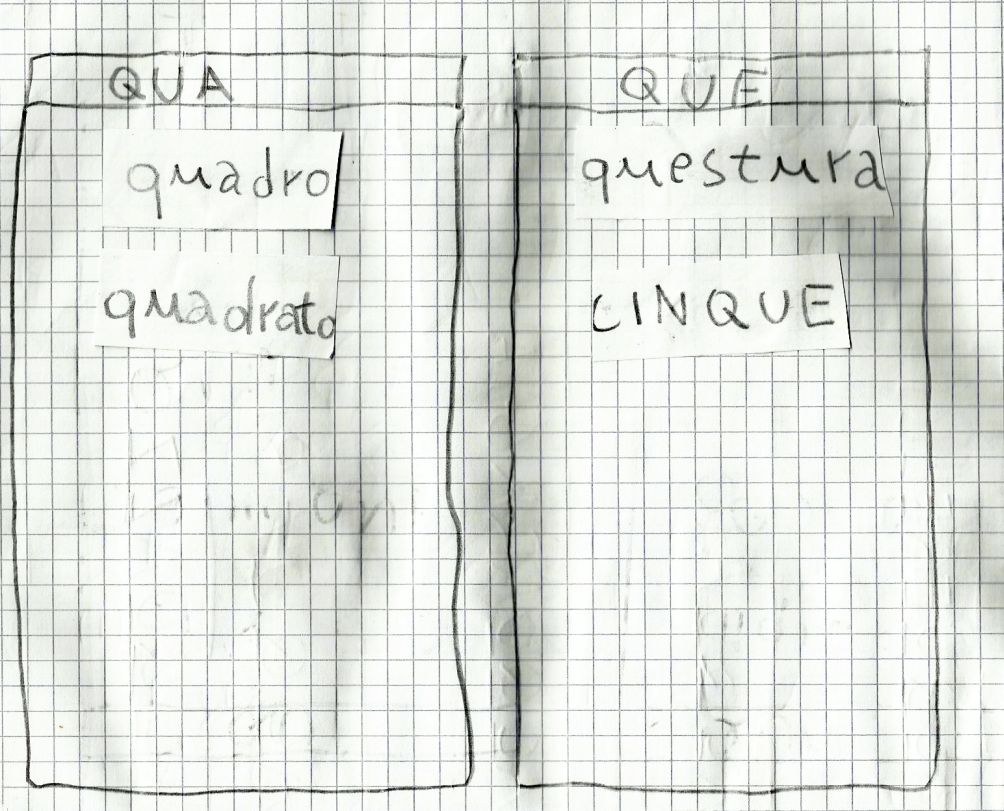 QUA
quadro
quadrato
QUE
questura
CINQUE